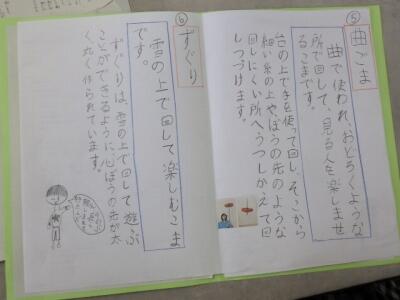 ⑤
曲ごま
曲で使われ、おどろくような
所で回して、見る人を楽しませ
るこまです。
台の上で手を使って回し、そこから
細い糸の上や、ぼうの先のような
回しにくい所へうつしかえて回
しつづけます。
⑥
ずぐり
雪の上で回して楽しむこま
です。
ずぐりは、雪の上で回して遊ぶ
ことができるように、心ぼうの先が太
く、丸く作られています。